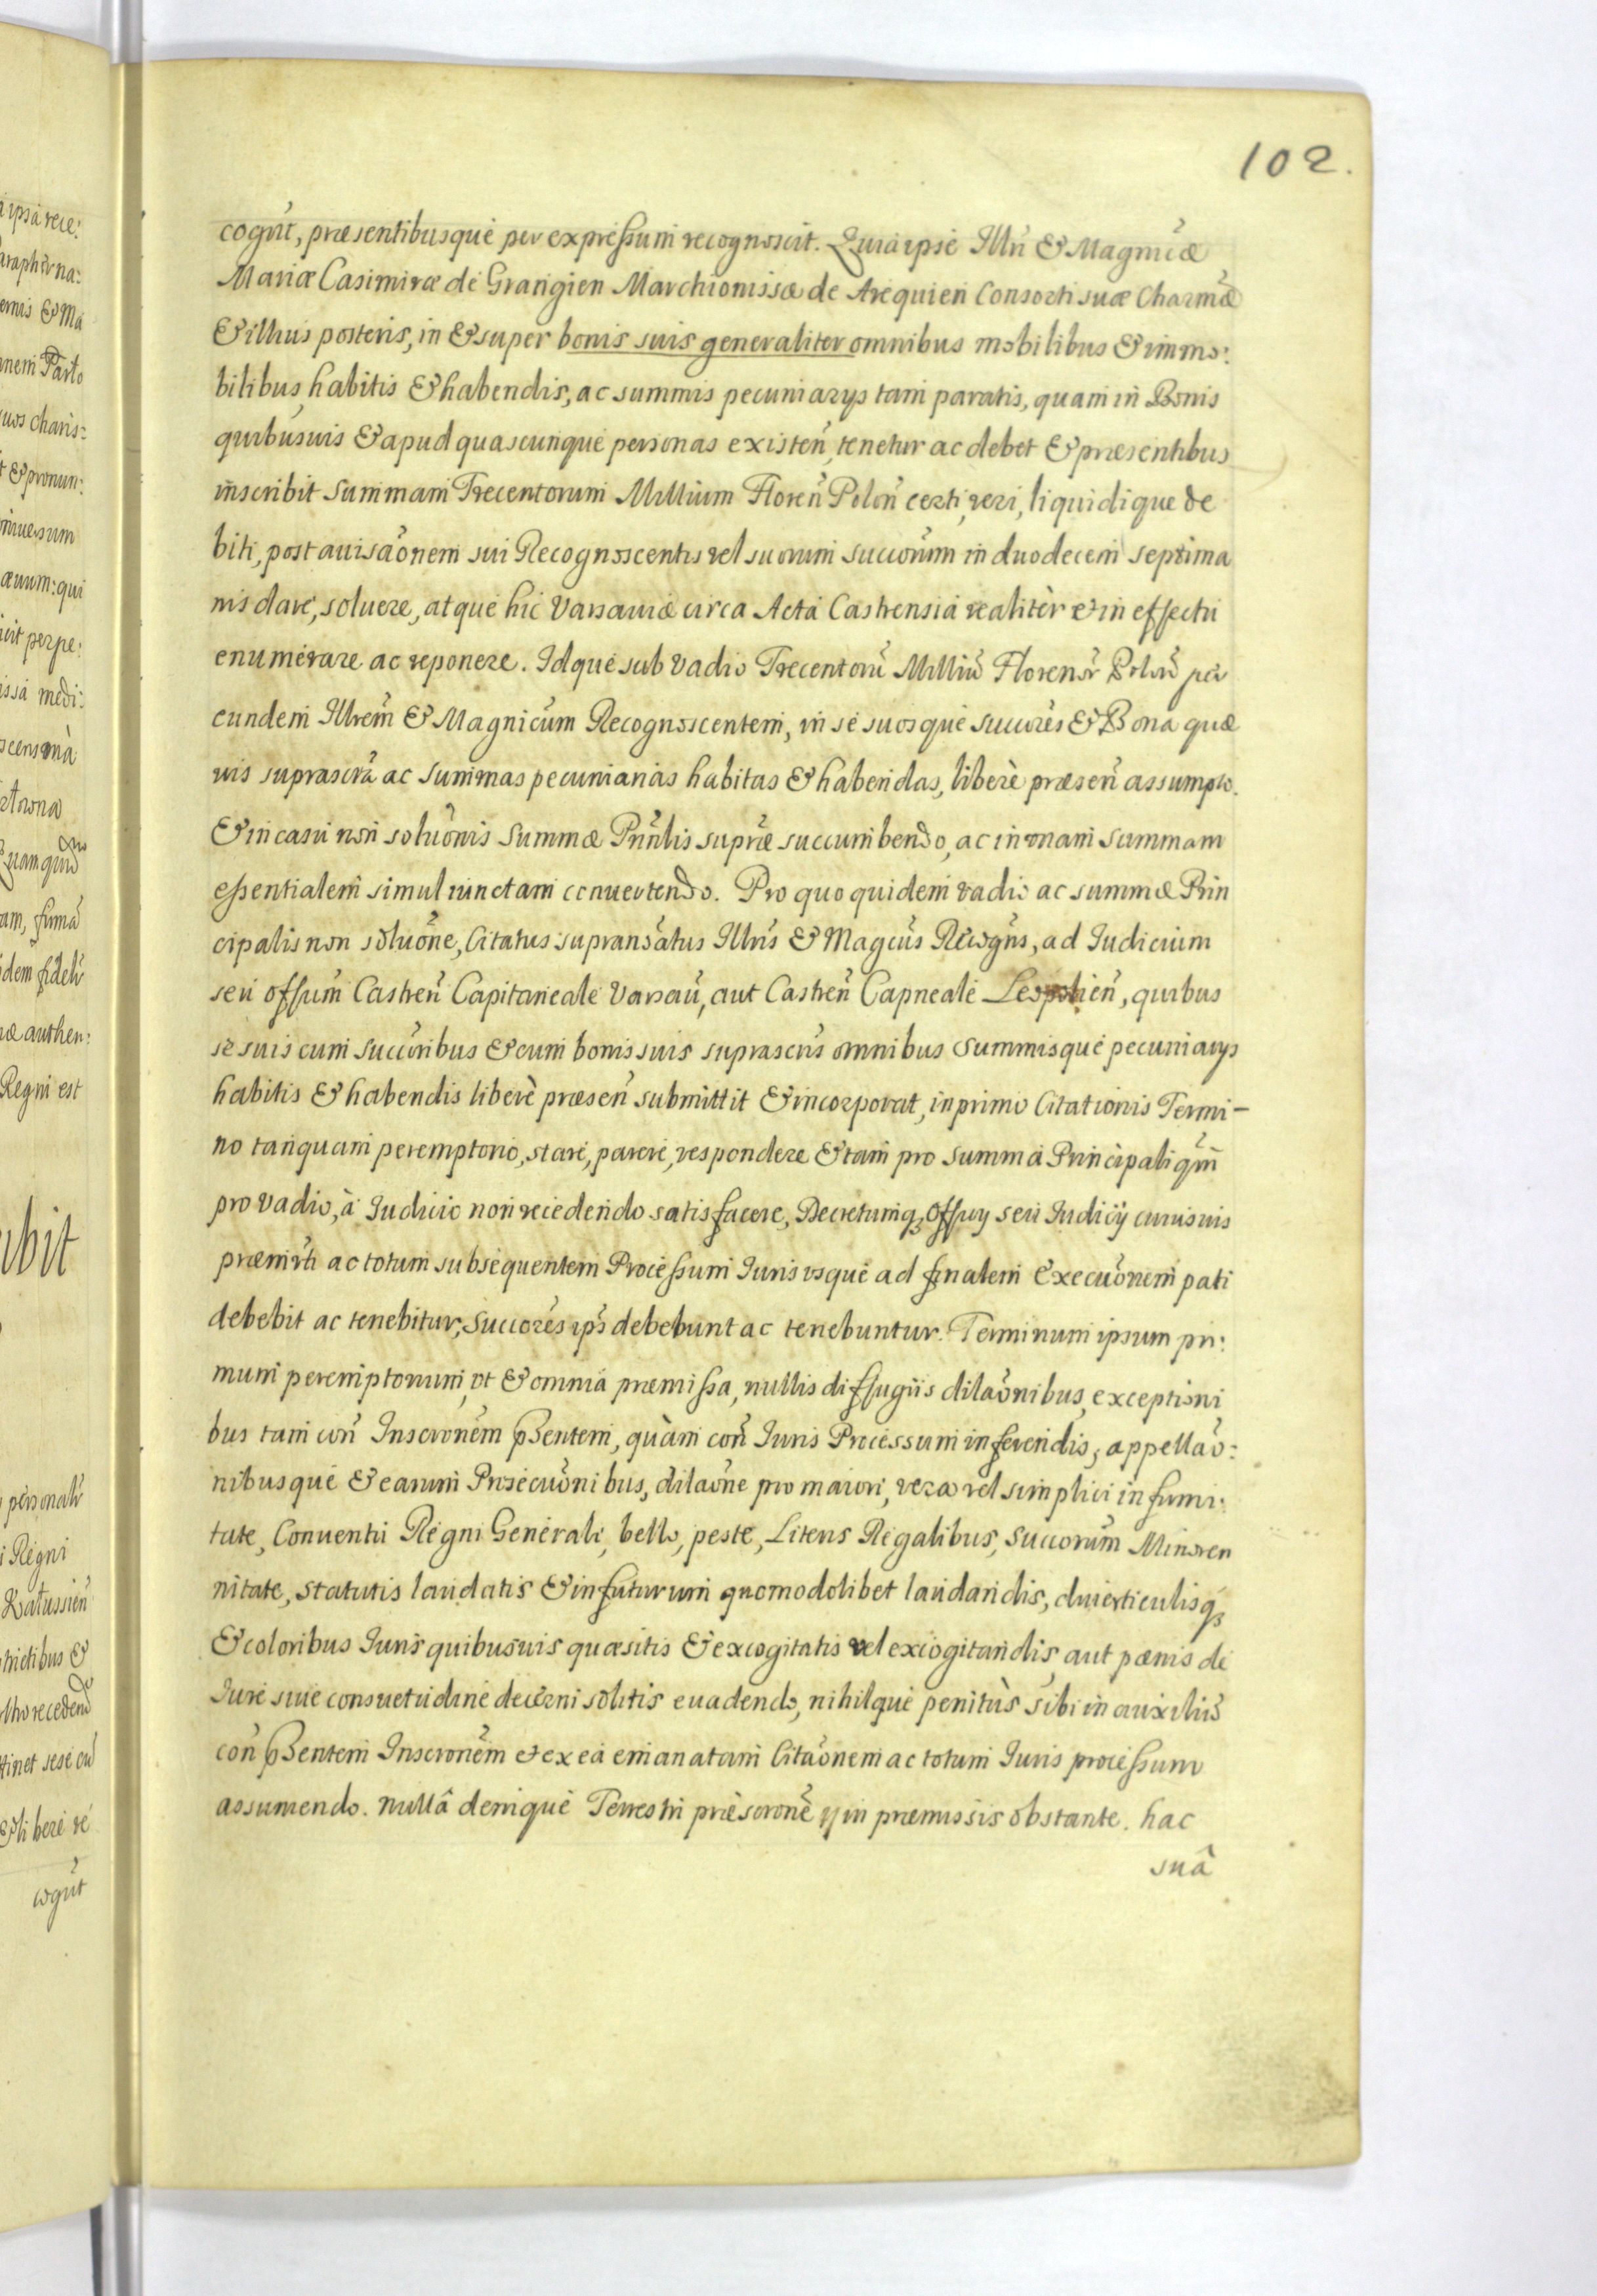 102.
cognt, præsentibusque per expressum recognoscit. Quia ipse Illri & Magnicæ
Mariæ Casimiræ de Grangien Marchionissæ de Arequien Consorti suæ Charmæ
& illius posteris, in & super bonis suis generaliter omnibus mobilibus & immo:
bilibus habitis & habendis, ac summis pecuniarys tam paratis, quam in Bonis
quibusuis & apud quascunque personas existen, tenetur ac debet & præsentibus
inscribit Summam Trecentorum Millium Floren Polon certi, veri, liquidique de
biti, post auisaonem sui Recognoscentis vel suorum succorum in duodecem septima
nis dare, soluere, atque hic Varsauiæ circa Acta Castrensia realitèr et in effectu
enumerare ac reponere. Idque sub vadio Trecentorũ Milliũ Florenor Polon per
eundem Illrem & Magnicum Recognoscentem, in se suosque succores & Bona quæ
uis suprascra ac Summas pecuniarias habitas & habendas, liberè præsen assumpto.
& in casu non soluonis Summæ Prinlis supræ succumbendo, ac in vnam summam
essentialem simul iunctam conuertendo. Pro quo quidem vadio ac summæ Prin
cipalis non soluone, Citatus supransatus Illris & Magcus Recogns, ad Iudicium
seu offium Castren Capitaneale Varsau, aut Castren Capneale Leopolien, quibus
se suis cum succoribus & cum bonis suis suprascris omnibus Summisque pecuniarys
habitis & habendis liberè præsen submittit & incorporat, in primo Citationis Termi-
no tanquam peremptorio, stare, parere, respondere & tam pro Summa Principali qm
pro vadio, à Iudicio non recedendo satisfacere, Decretumq; offiiy seu Iudicij cuiusuis
præmissi ac totum subsequentem Processum Iuris vsque ad finalem Execuonem pati
debebit ac tenebitur, Succores ips debebunt ac tenebuntur. Terminum ipsum pri:
mum peremptorium, vt & omnia præmissa, nullis diffugiis dilaonibus, exceptioni
bus tam con Inscronem pntem, quàm con Iuris Processum inferendis, appellao:
nibusque & earum Prosecuonibus, dilaone pro maiori, vera vel simplici infirmi:
tate, Conuentu Regni Generali, bello, peste, Literis Regalibus, Succorum Minoren
nitate, Statutis laudatis & in futurum quomodolibet laudandis, diuerticulisq;
& coloribus Iuris quibusuis quæsitis & excogitatis vel excogitandis aut pænis de
Iure siue consuetudine decerni solitis euadendo, nihilque penitùs sibi in auxiliũ
con pntem Inscronem et ex ea emanatam Citaonem ac totum Iuris processum
assumendo. nullâ denique Terrestri præscronè in præmissis obstante. hac
suâ